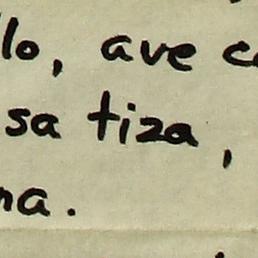 llo, ave c
sa tiza,
na.